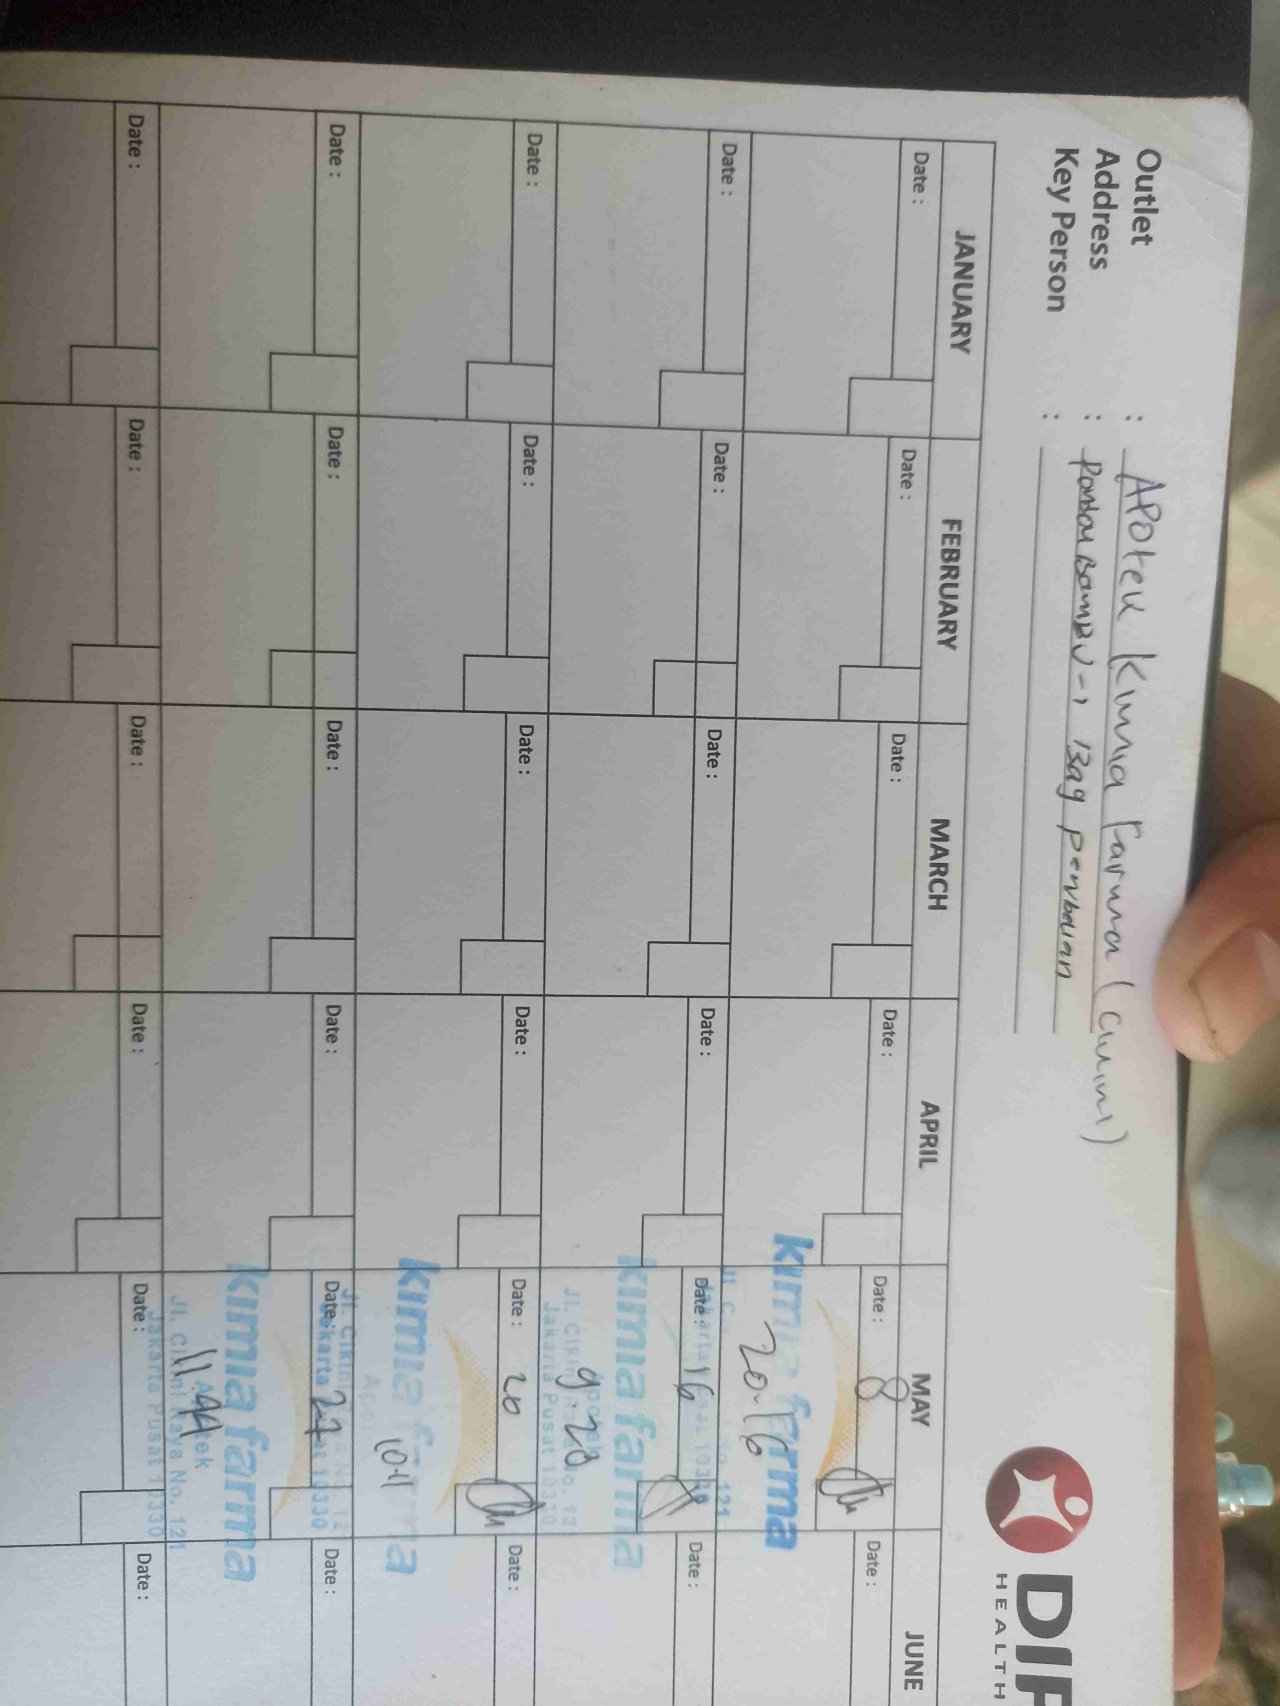 DIF
HEALTH
Outlet : Apotek Kimia Farma (Cikini)
Address : Pondok Bambu-1 Bag pembelian
Key Person :
JANUARY FEBRUARY MARCH APRIL MAY JUNE
Date : Date : Date : Date : Date : 8 Date :
kimia farma
20-16
Jl. No. 121
Jakarta 10330
Date : Date : Date : Date : Date : 16 Date :
kimia farma
9.20
Jl. Cikini No. 12
Jakarta Pusat 10330
Date : Date : Date : Date : Date : 20 Date :
kimia farma
10-11
Jl. Cikini
Date : Date : Date : Date : Date : 27 Date :
kimia farma
11.44
Jl. Cikini Raya No. 121
Jakarta Pusat 10330
Date : Date : Date : Date : Date : Date :